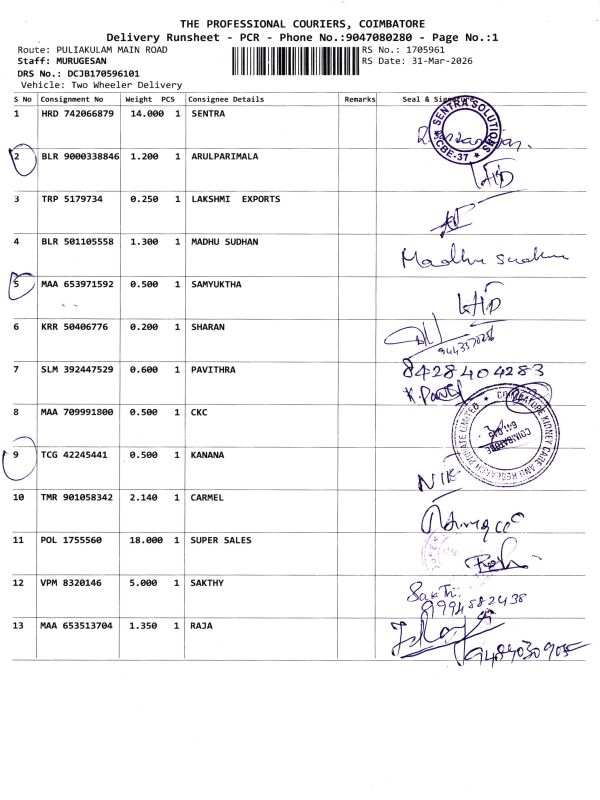 THE PROFESSIONAL COURIERS, COIMBATORE
Delivery Runsheet - PCR - Phone No.:9047080280 - Page No.:1
Route: PULIAKULAM MAIN ROAD RS No.: 1705961
Staff: MURUGESAN RS Date: 31-Mar-2026
DRS No.: DCJB170596101
Vehicle: Two Wheeler Delivery
S No Consignment No Weight PCS Consignee Details Remarks Seal & Signature
1 HRD 742066879 14.000 1 SENTRA
SENTRA SOLUTIONS
CBE-37
2 BLR 9000338846 1.200 1 ARULPARIMALA
3 TRP 5179734 0.250 1 LAKSHMI EXPORTS
4 BLR 501105558 1.300 1 MADHU SUDHAN
Madhu
5 MAA 653971592 0.500 1 SAMYUKTHA
6 KRR 50406776 0.200 1 SHARAN
7 SLM 392447529 0.600 1 PAVITHRA
8428404283
8 MAA 709991800 0.500 1 CKC
COIMBATORE KIDNEY CARE AND RESEARCH PRIVATE LIMITED
COIMBATORE
9 TCG 42245441 0.500 1 KANANA
10 TMR 901058342 2.140 1 CARMEL
11 POL 1755560 18.000 1 SUPER SALES
12 VPM 8320146 5.000 1 SAKTHY
Sakthi
13 MAA 653513704 1.350 1 RAJA